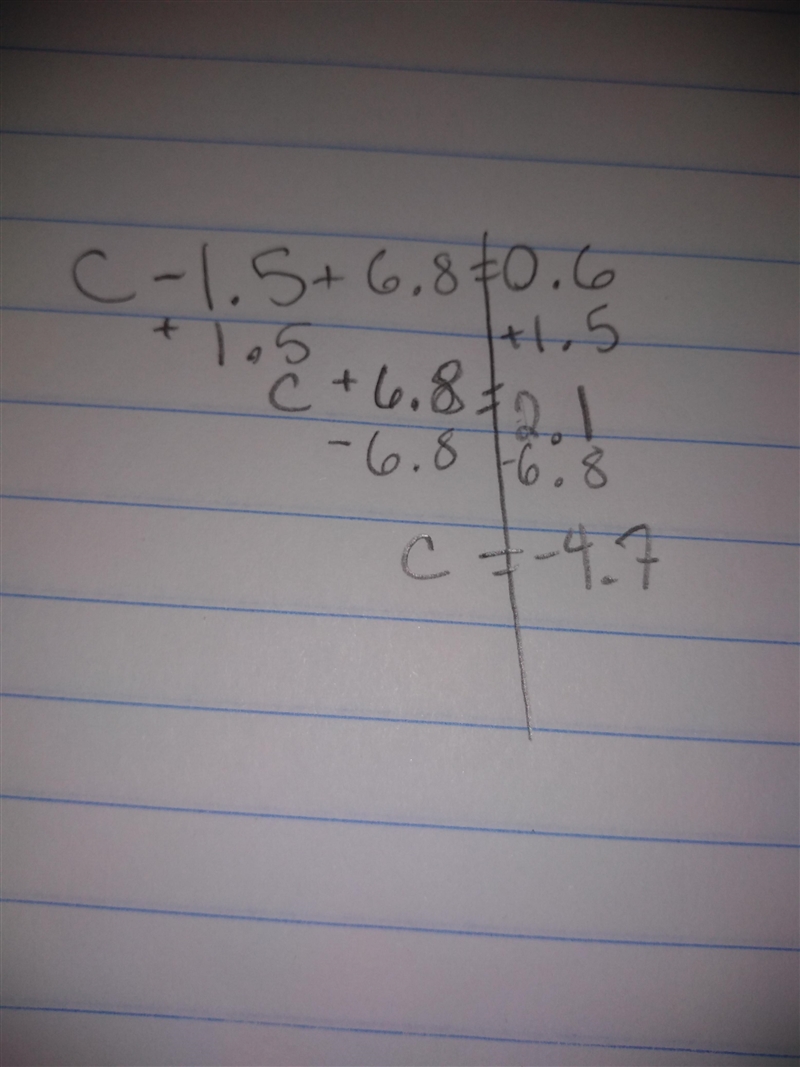 C - 1.5 + 6.8 = 0.6
+ 1.5 +1.5
C + 6.8 = 2.1
- 6.8 -6.8
C = -4.7